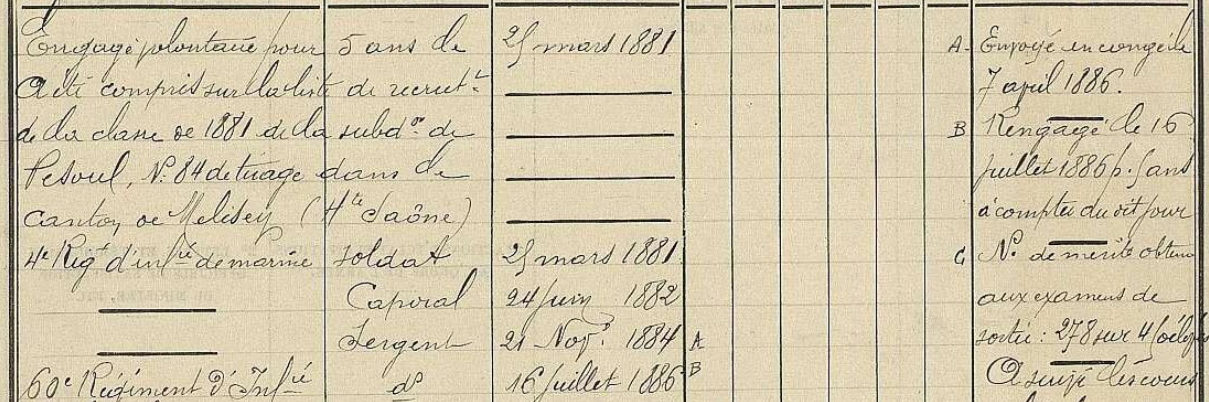 Engagé volontaire pour 5 ans le 25 mars 1881
A été compris sur la liste de recrut.t
de la classe de 1881 de la subd.on de
Vesoul, N.o 84 de tirage dans le
canton de Melisey (H.te Saône)
4e Rég.t d'inf.rie de marine soldat 25 mars 1881
Caporal 24 Juin 1882
Sergent 21 Nov.e 1884 A
60e Régiment d'Inf.rie d.o 16 Juillet 1886 B
A. Envoyé en congé le
7 avril 1886.
B Rengagé le 16
juillet 1886 p. 5 ans
à compter du dit jour
C N.o de mérite obtenu
aux examens de
sortie : 278 sur 450 élèves
A suivi les cours